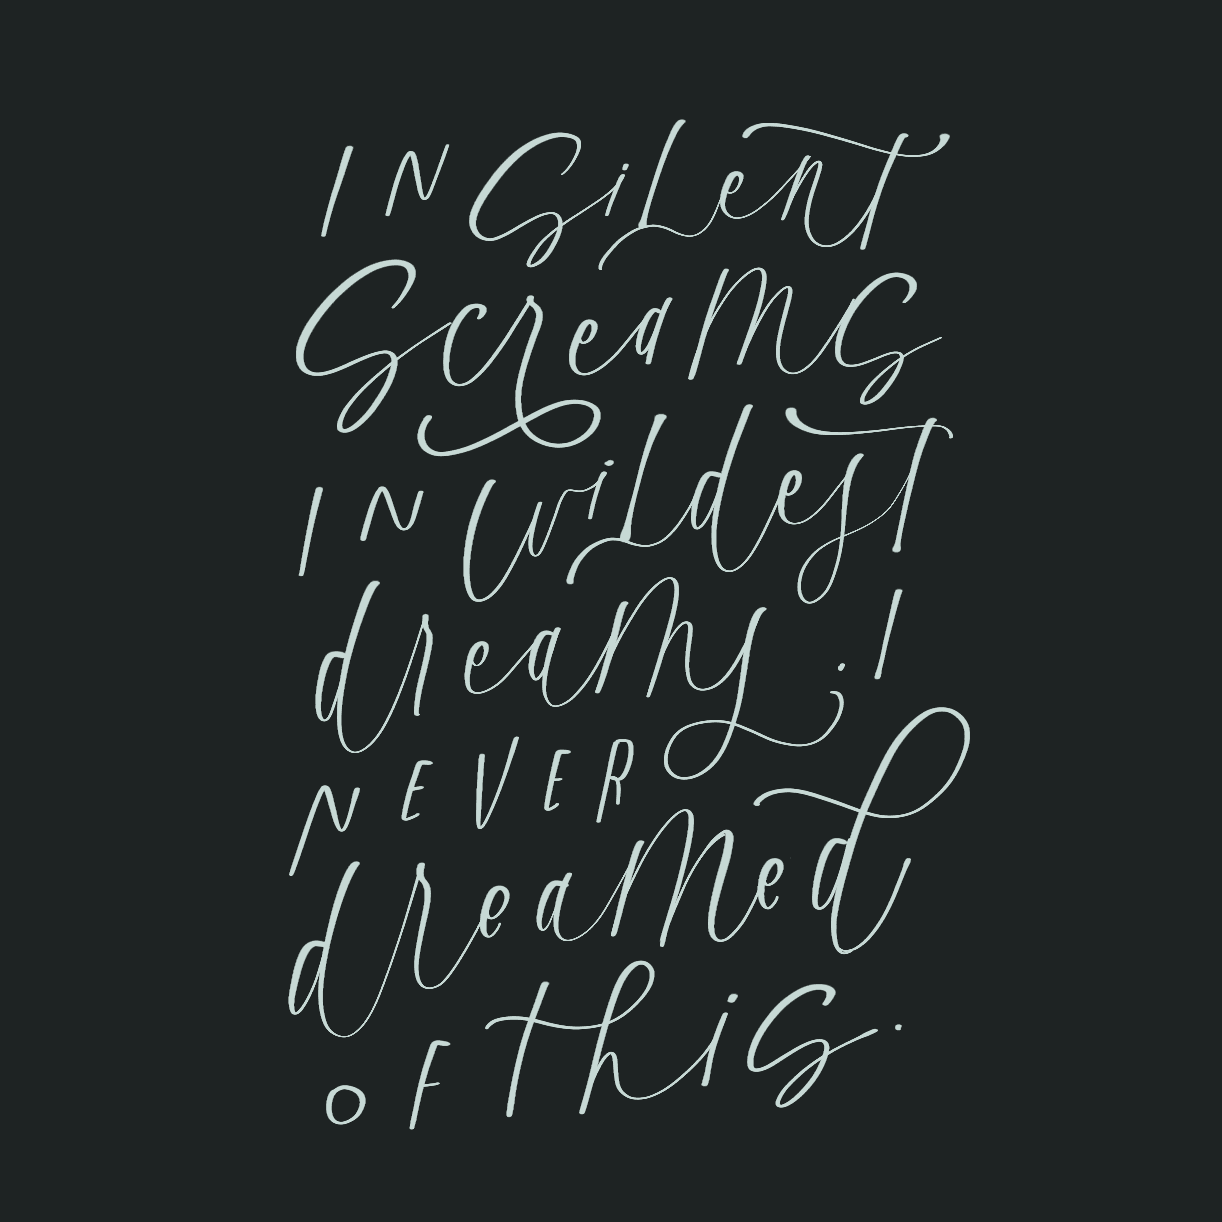 IN SiLenT
ScreaMS
IN wiLdesT
dreaMs; I
NEVER
dreaMed
oF This.